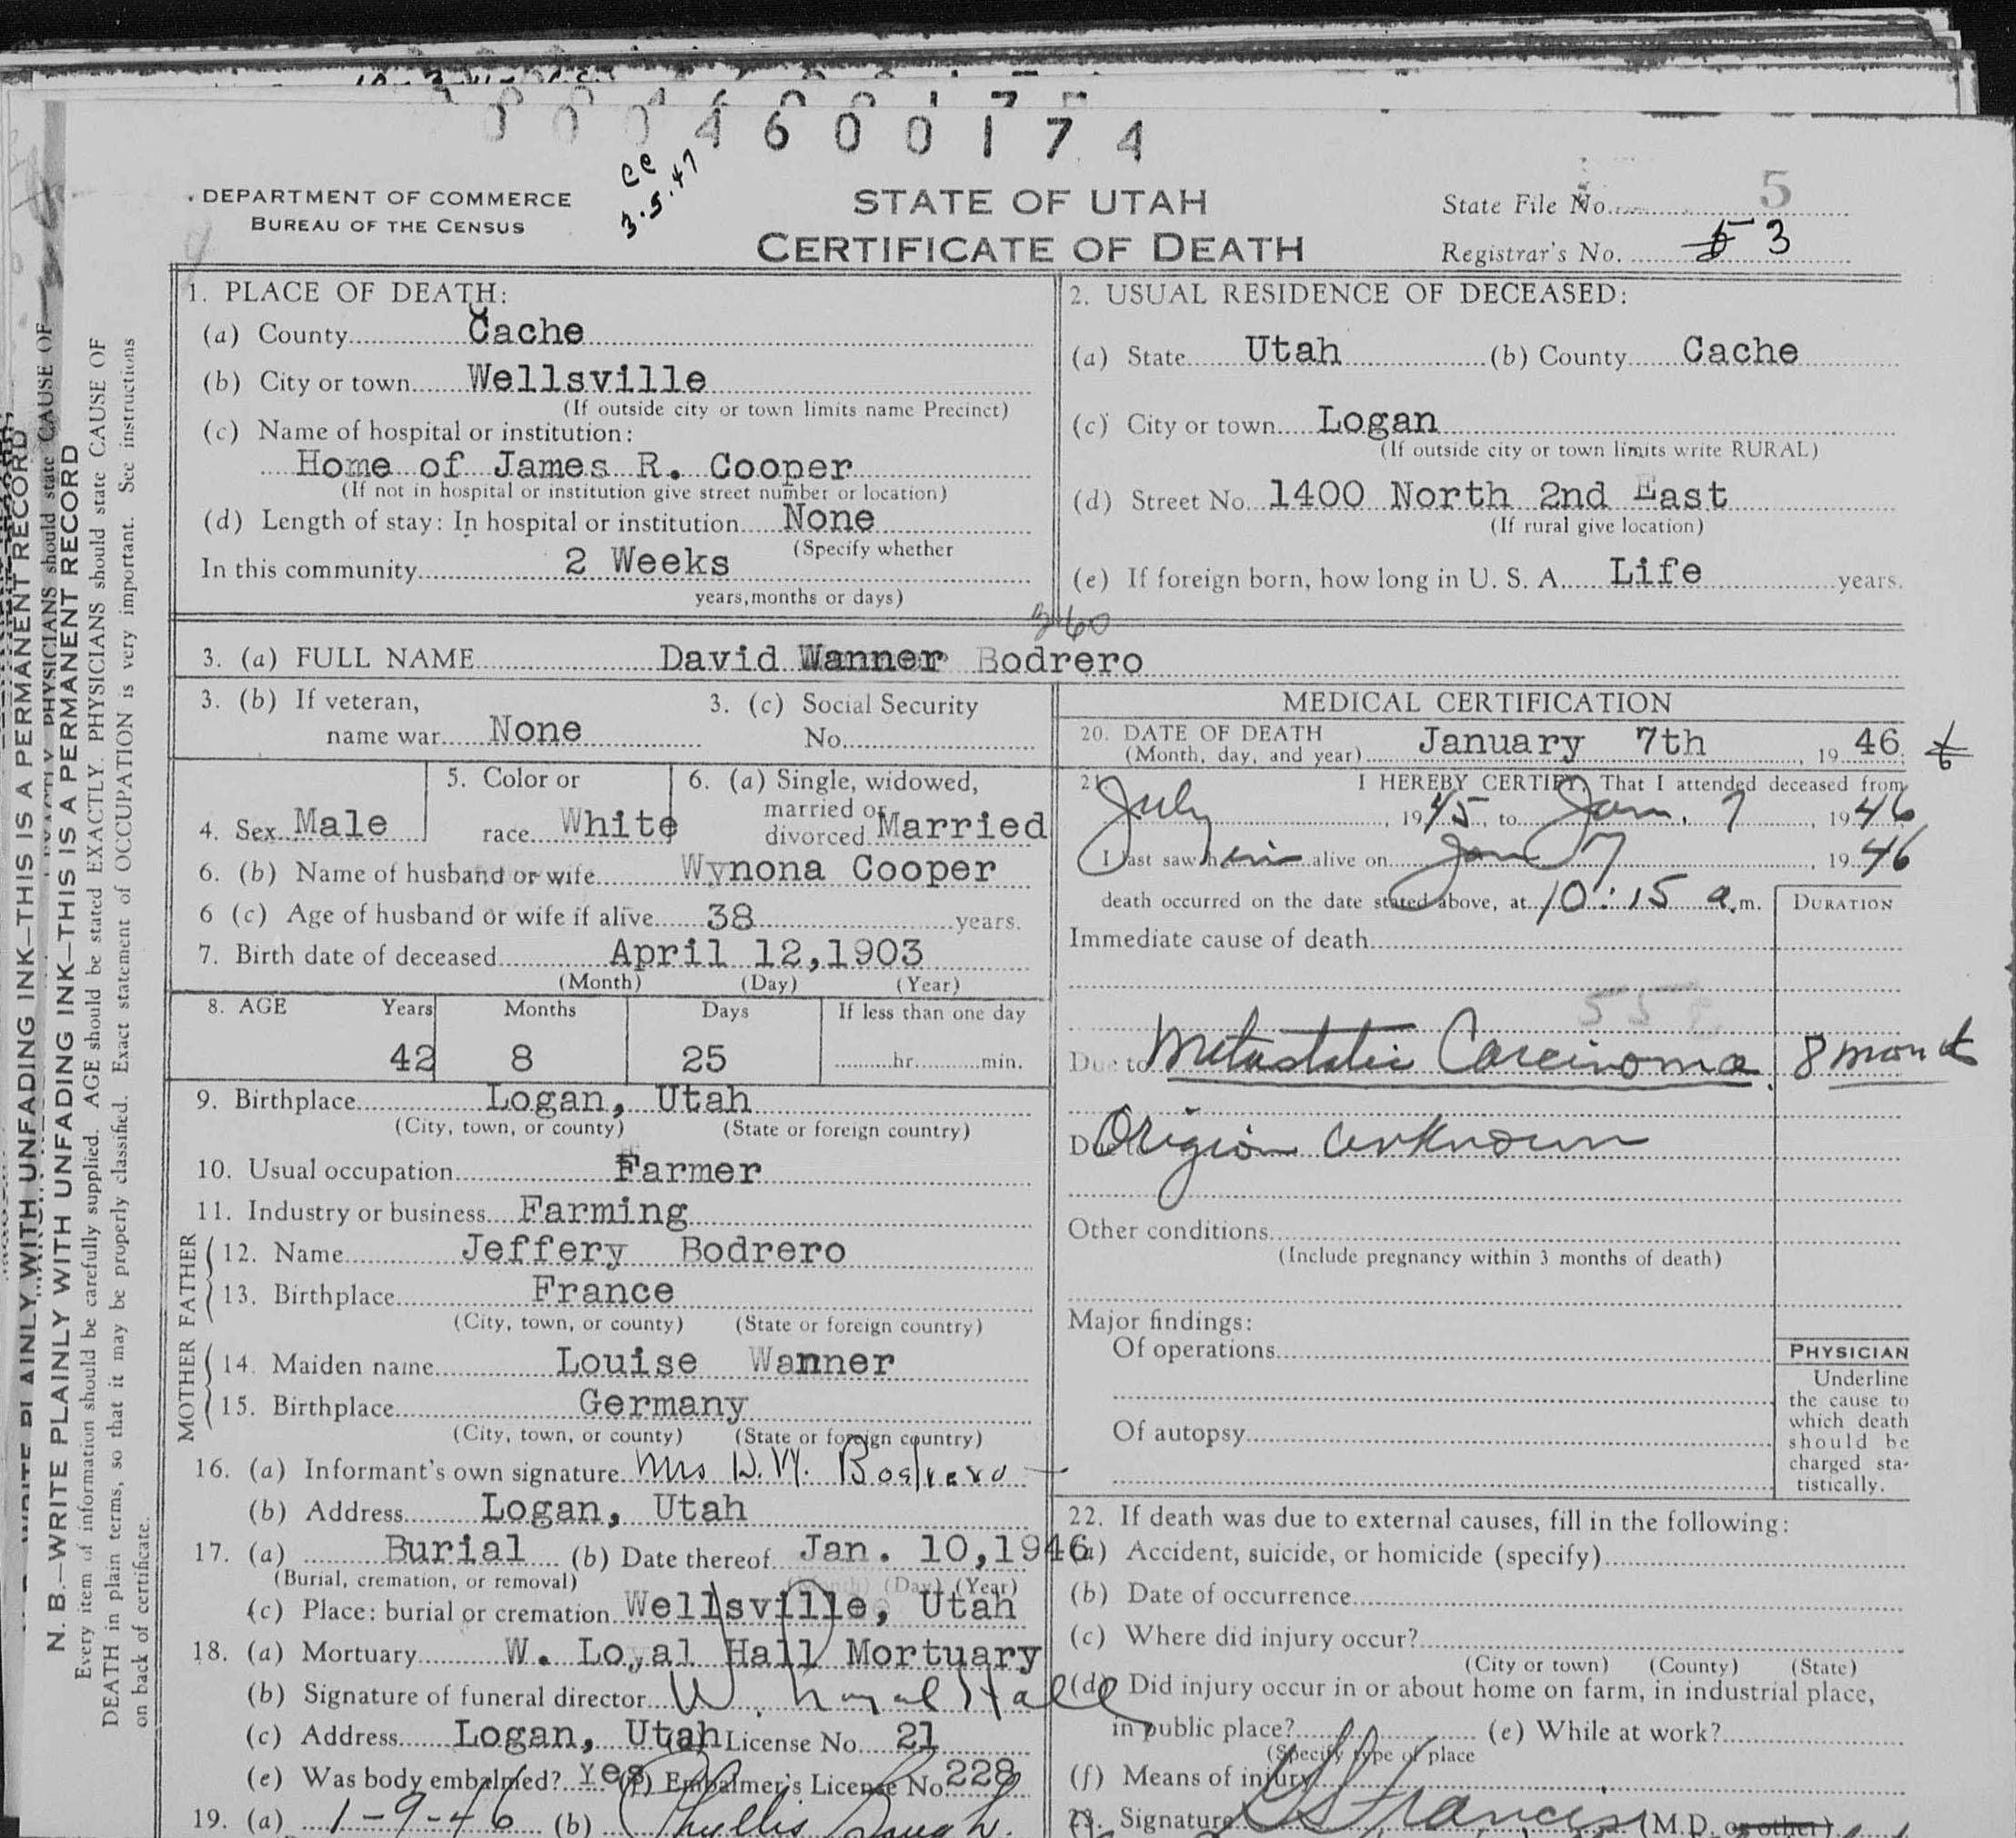 0004600174
CC
3.5.47
DEPARTMENT OF COMMERCE
BUREAU OF THE CENSUS
STATE OF UTAH
CERTIFICATE OF DEATH
State File No. 5
Registrar's No. 3
N. B.—WRITE PLAINLY WITH UNFADING INK—THIS IS A PERMANENT RECORD
Every item of information should be carefully supplied. AGE should be stated EXACTLY. PHYSICIANS should state CAUSE OF
DEATH in plain terms, so that it may be properly classified. Exact statement of OCCUPATION is very important. See instructions
on back of certificate.
1. PLACE OF DEATH:
(a) County Cache
(b) City or town Wellsville
(If outside city or town limits name Precinct)
(c) Name of hospital or institution:
Home of James R. Cooper
(If not in hospital or institution give street number or location)
(d) Length of stay: In hospital or institution None
(Specify whether
In this community 2 Weeks
years, months or days)
2. USUAL RESIDENCE OF DECEASED:
(a) State Utah (b) County Cache
(c) City or town Logan
(If outside city or town limits write RURAL)
(d) Street No. 1400 North 2nd East
(If rural give location)
(e) If foreign born, how long in U. S. A. Life years.
3. (a) FULL NAME David Wanner Bodrero
3. (b) If veteran,
name war None
3. (c) Social Security
No.
4. Sex Male
5. Color or
race White
6. (a) Single, widowed,
married or
divorced Married
6. (b) Name of husband or wife Wynona Cooper
6 (c) Age of husband or wife if alive 38 years.
7. Birth date of deceased April 12,1903
(Month) (Day) (Year)
8. AGE Years Months Days If less than one day
42 8 25 hr. min.
9. Birthplace Logan, Utah
(City, town, or county) (State or foreign country)
10. Usual occupation Farmer
11. Industry or business Farming
FATHER
12. Name Jeffery Bodrero
13. Birthplace France
(City, town, or county) (State or foreign country)
MOTHER
14. Maiden name Louise Wanner
15. Birthplace Germany
(City, town, or county) (State or foreign country)
16. (a) Informant's own signature Mrs D.W. Bodrero
(b) Address Logan, Utah
17. (a) Burial (b) Date thereof Jan. 10,1946
(Burial, cremation, or removal) (Month) (Day) (Year)
(c) Place: burial or cremation Wellsville, Utah
18. (a) Mortuary W. Loyal Hall Mortuary
(b) Signature of funeral director W. Loyal Hall
(c) Address Logan, Utah License No. 21
(e) Was body embalmed? Yes (f) Embalmer's License No. 228
19. (a) 1-9-46 (b) Phyllis
MEDICAL CERTIFICATION
20. DATE OF DEATH
(Month, day, and year) January 7th, 1946
21. I HEREBY CERTIFY, That I attended deceased from
July, 1945, to Jan. 7, 1946
I last saw him alive on Jan 7, 1946
death occurred on the date stated above, at 10:15 a.m.
DURATION
Immediate cause of death
Due to Metastatic Carcinoma 8 mon
Origion unknown
Other conditions
(Include pregnancy within 3 months of death)
Major findings:
Of operations
Of autopsy
PHYSICIAN
Underline
the cause to
which death
should be
charged sta-
tistically.
22. If death was due to external causes, fill in the following:
(a) Accident, suicide, or homicide (specify)
(b) Date of occurrence
(c) Where did injury occur?
(City or town) (County) (State)
(d) Did injury occur in or about home on farm, in industrial place,
in public place? (e) While at work?
(Specify type of place
(f) Means of injury
23. Signature Francis (M.D. or other)